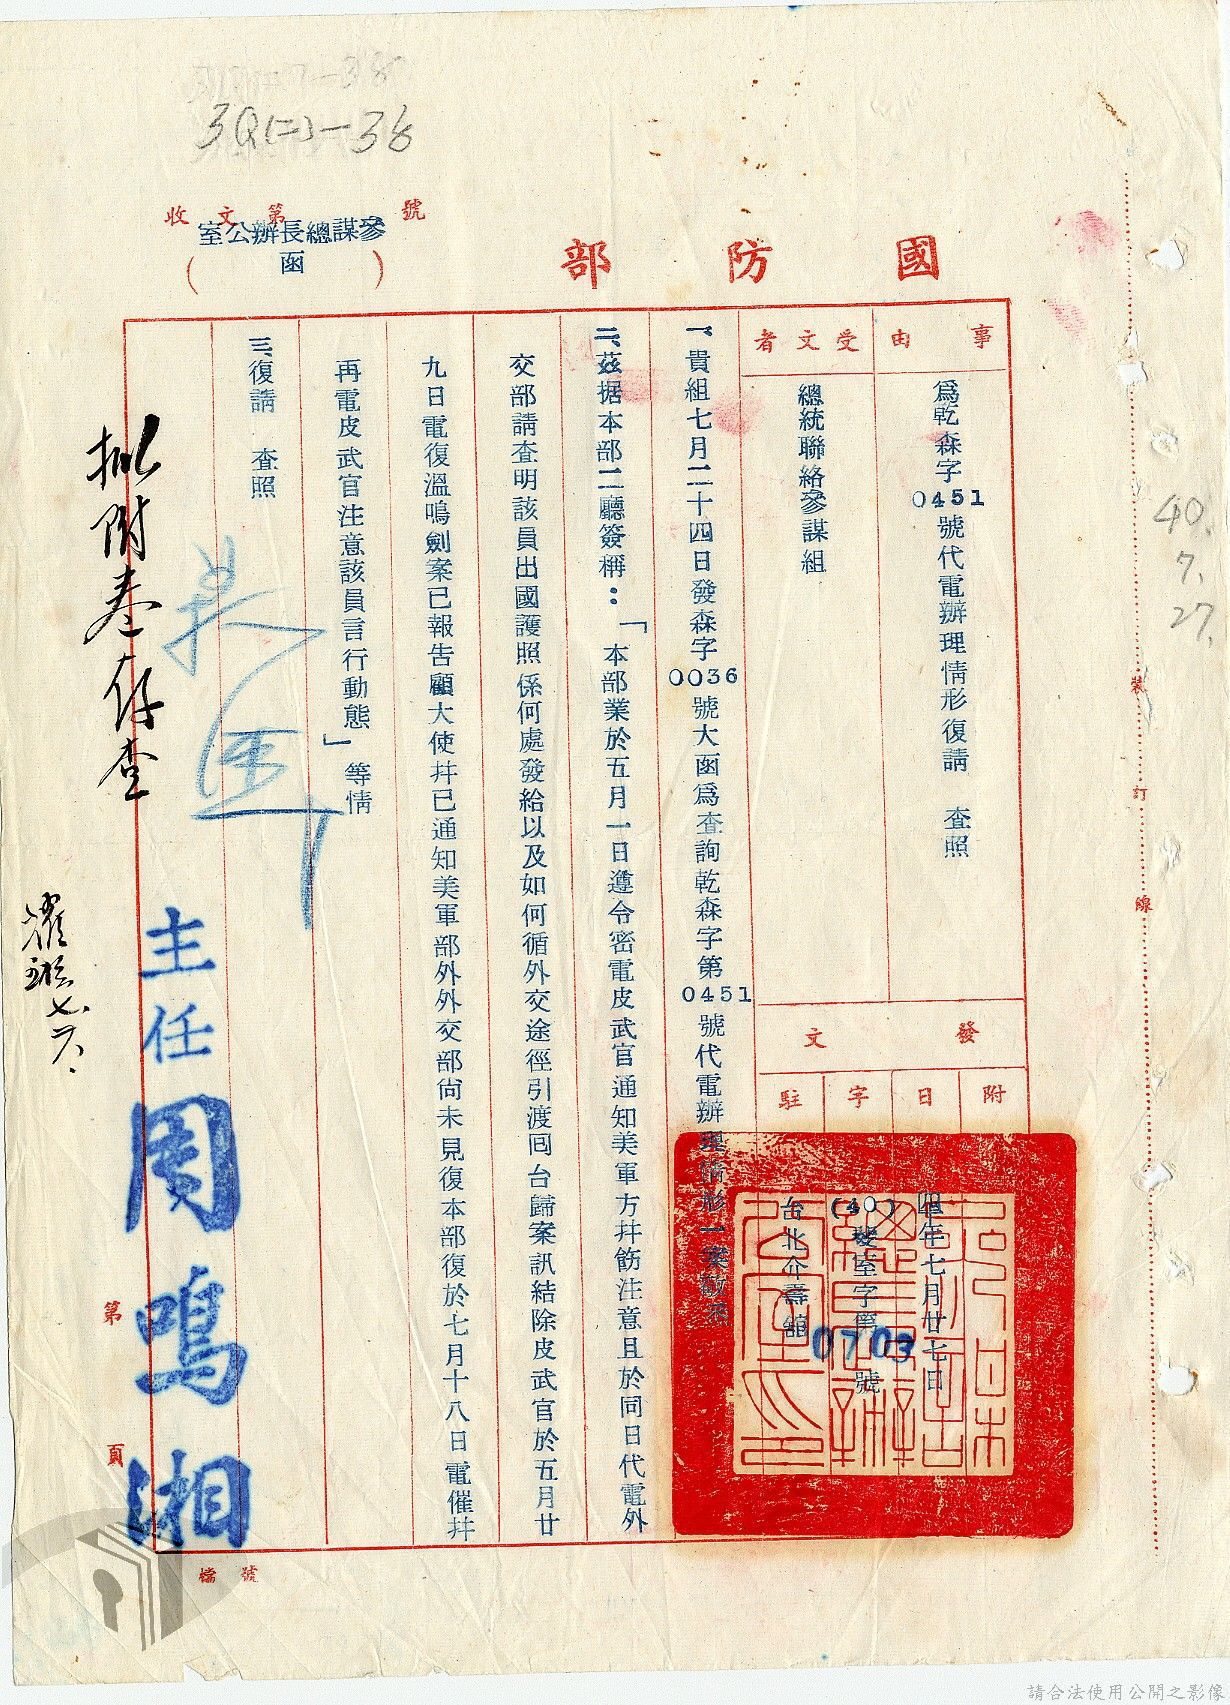 3Q(二)-38
收文第　　號
國防部
參謀總長辦公室
(函)
事由
為乾森字0451號代電辦理情形復請　查照
受文者
總統聯絡參謀組
發文
附
日
四〇年七月廿七日
字
(40)發室字第0703號
駐
台北介壽館
一、貴組七月二十四日發森字0036號大函為查詢乾森字第0451號代電辦理情形一案敬悉
二、茲据本部二廳簽稱：「本部業於五月一日遵令密電皮武官通知美軍方幷飭注意且於同日代電外
交部請查明該員出國護照係何處發給以及如何循外交途徑引渡回台歸案訊結除皮武官於五月廿
九日電復溫鳴劍案已報告顧大使幷已通知美軍部外外交部尙未見復本部復於七月十八日電催幷
再電皮武官注意該員言行動態」等情
三、復請　查照
主任周鳴湘
擬附卷存查
40.
7.
27.
裝訂線
第　頁
檔號
請合法使用公開之影像